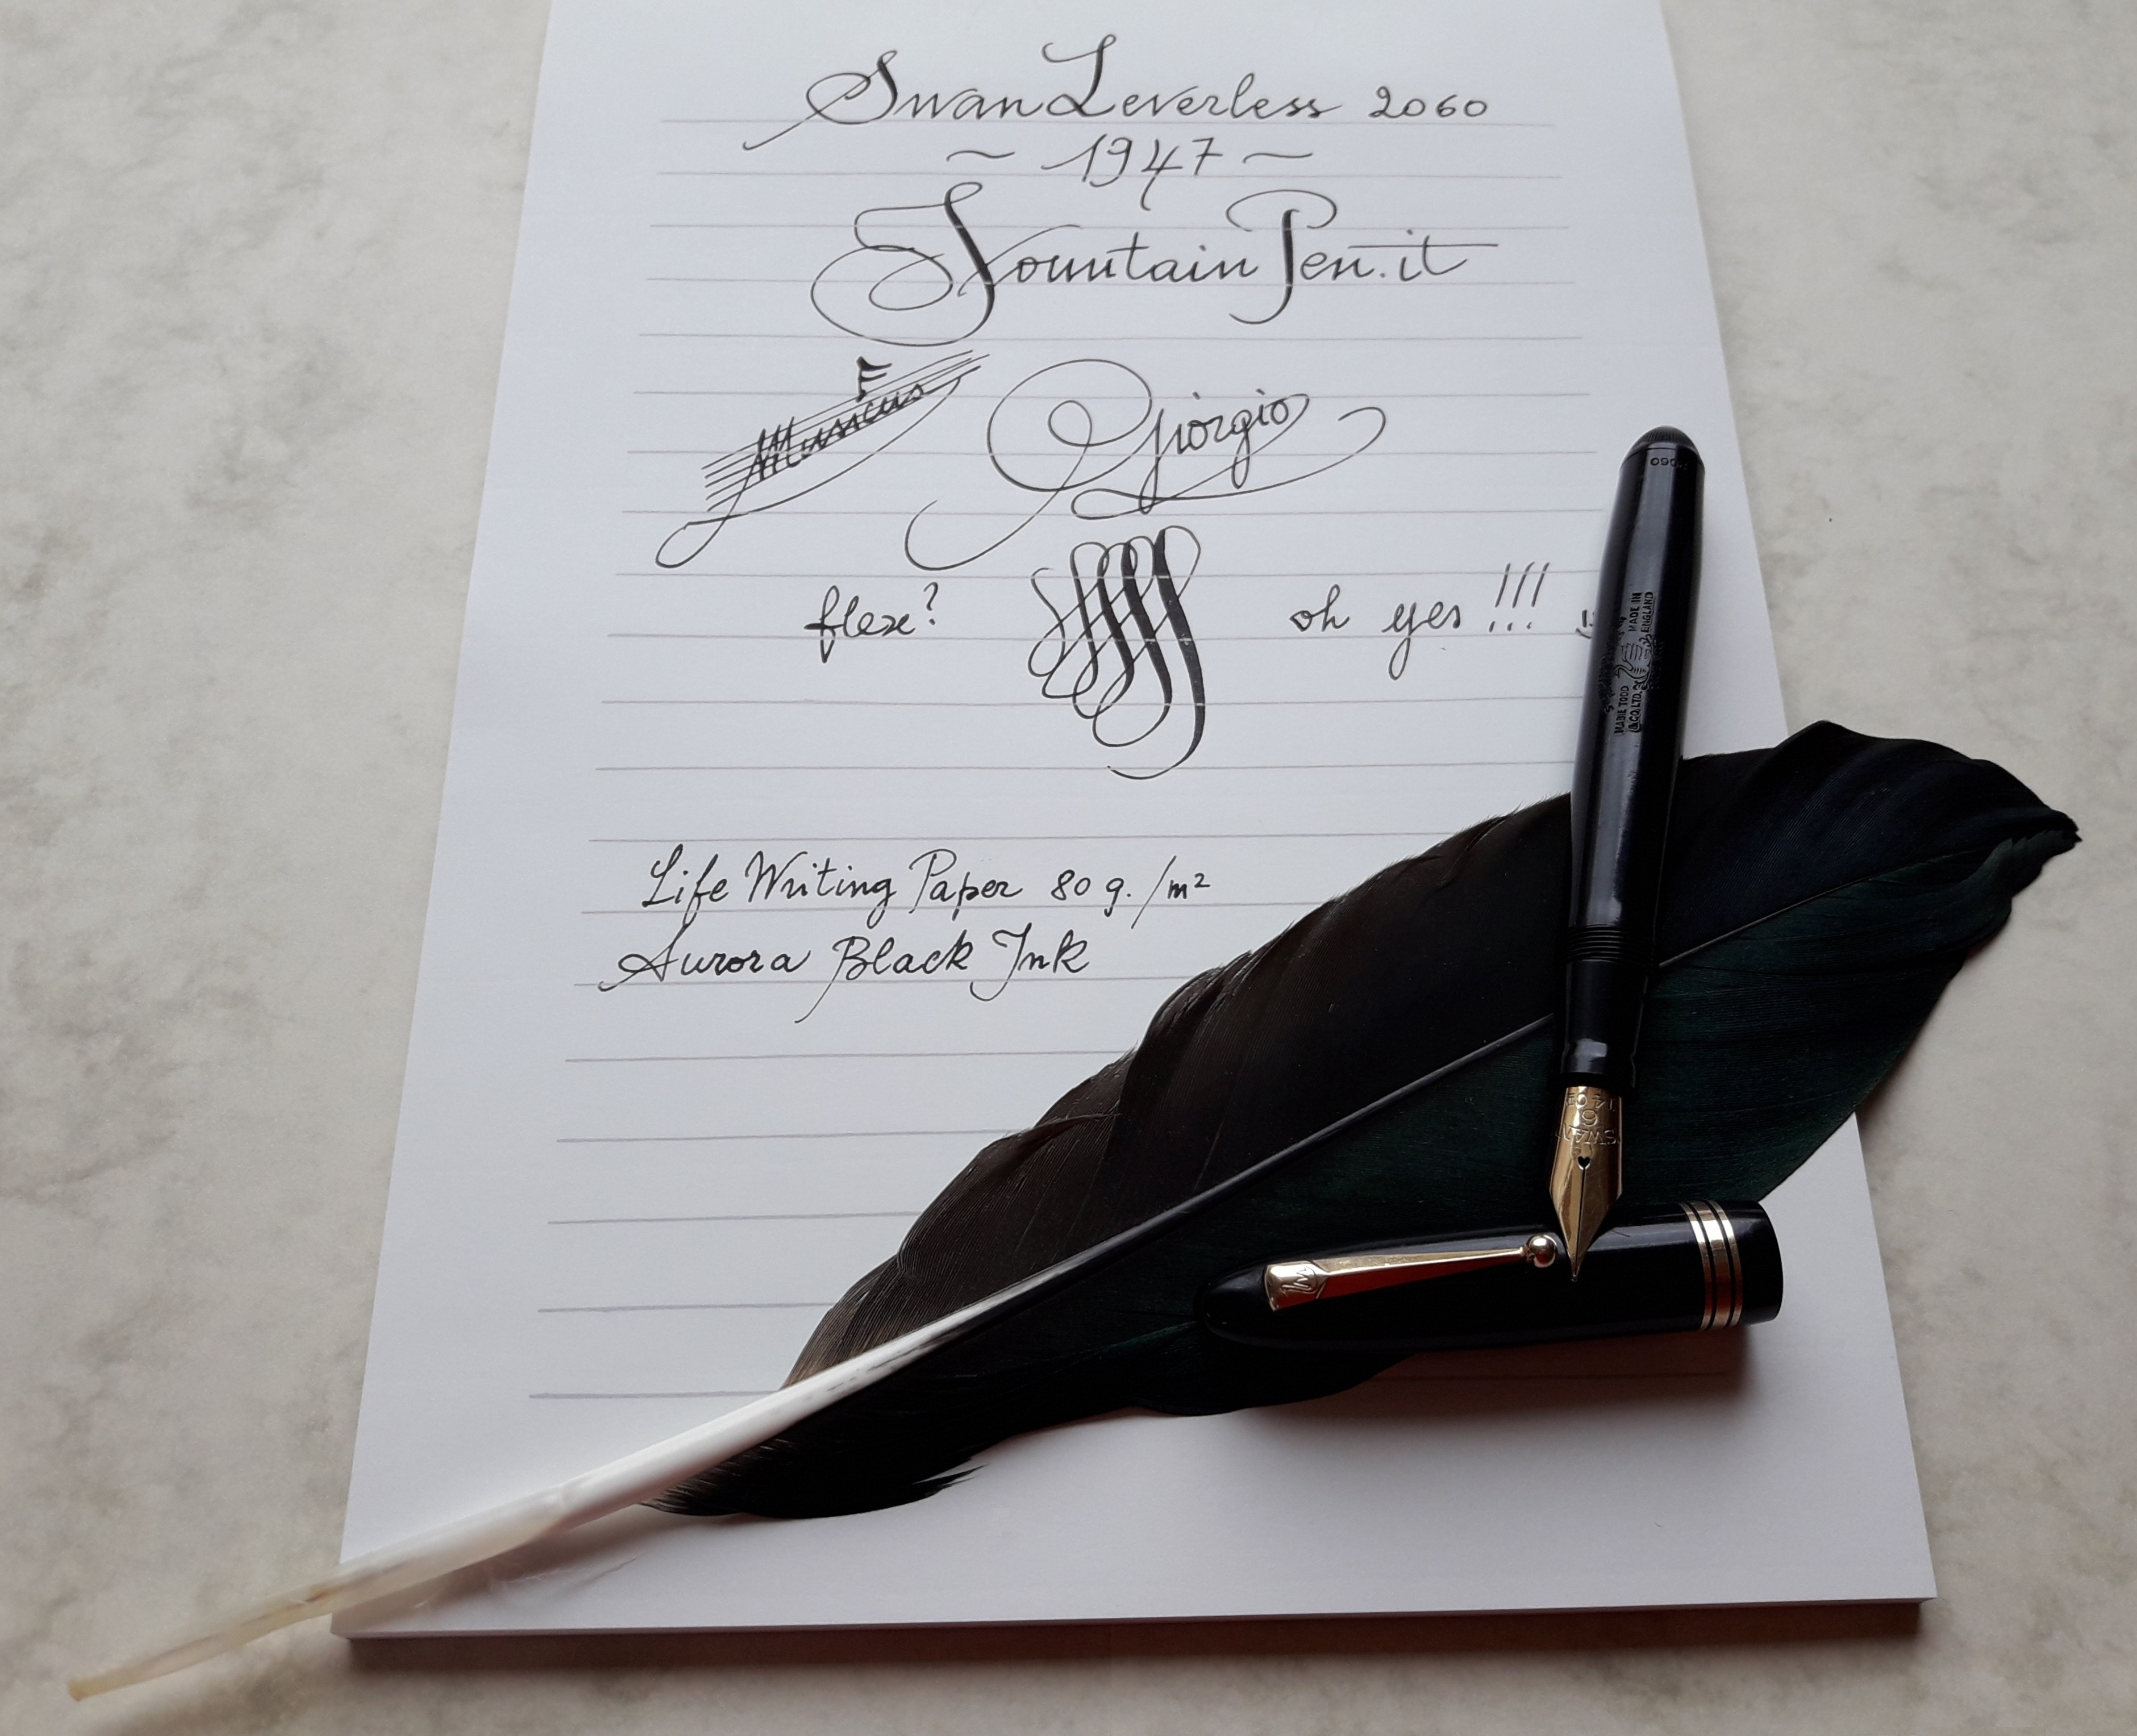 Swan Leverless 2060
~ 1947 ~
FountainPen.it
Musicus Giorgio
flex? oh yes !!!
Life Writing Paper 80 g./m²
Aurora Black Ink
2060
MADE IN
ENGLAND
MABIE TODD
& CO. LTD.
14 CT
6
SWAN